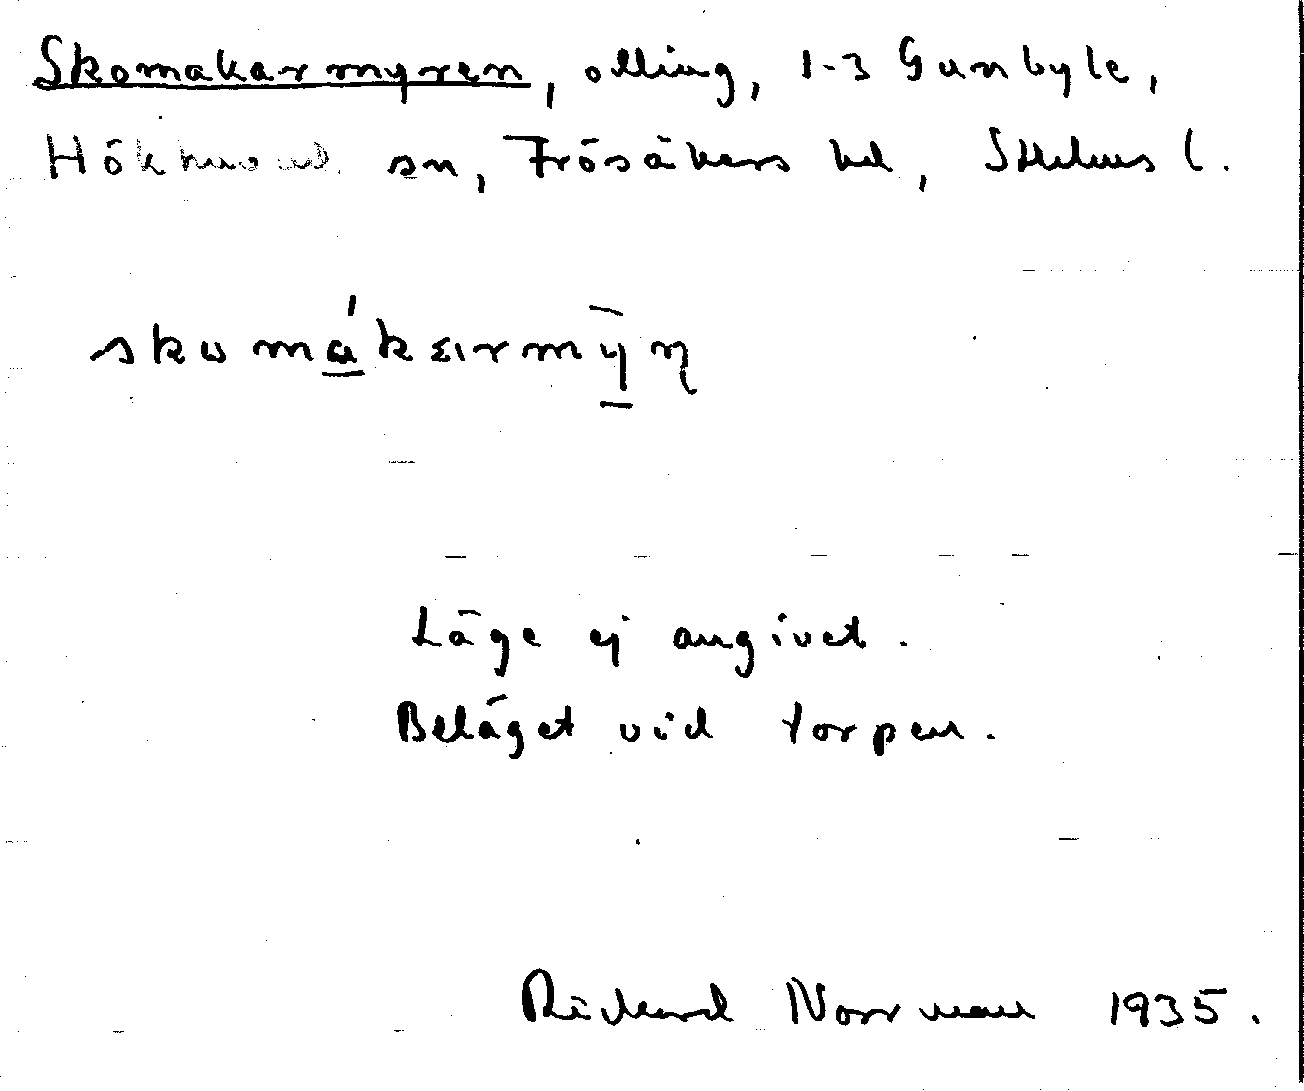 Skomakarmyren, olling, 1-3 Gunbyle,
Hökhuvud sn, Frösåkers hd, Sthlms l.
skomákɛrmȳn
Läge ej angivet.
Beläget vid torpen.
Rickard Norrman 1935.